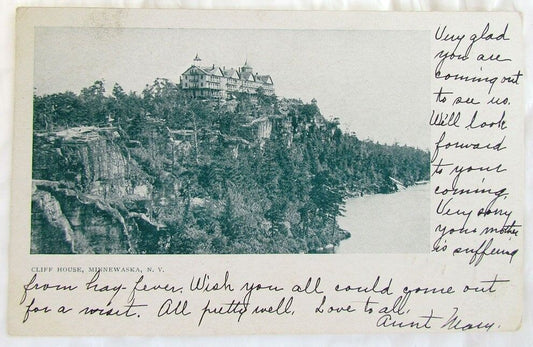 Very glad
you are
coming out
to see us.
We'll look
forward
to your
coming.
Very sorry
your mother
is suffering
CLIFF HOUSE, MINNEWASKA, N. Y.
from hay fever. Wish you all could come out
for a visit. All pretty well. Love to all.
Aunt Mary.